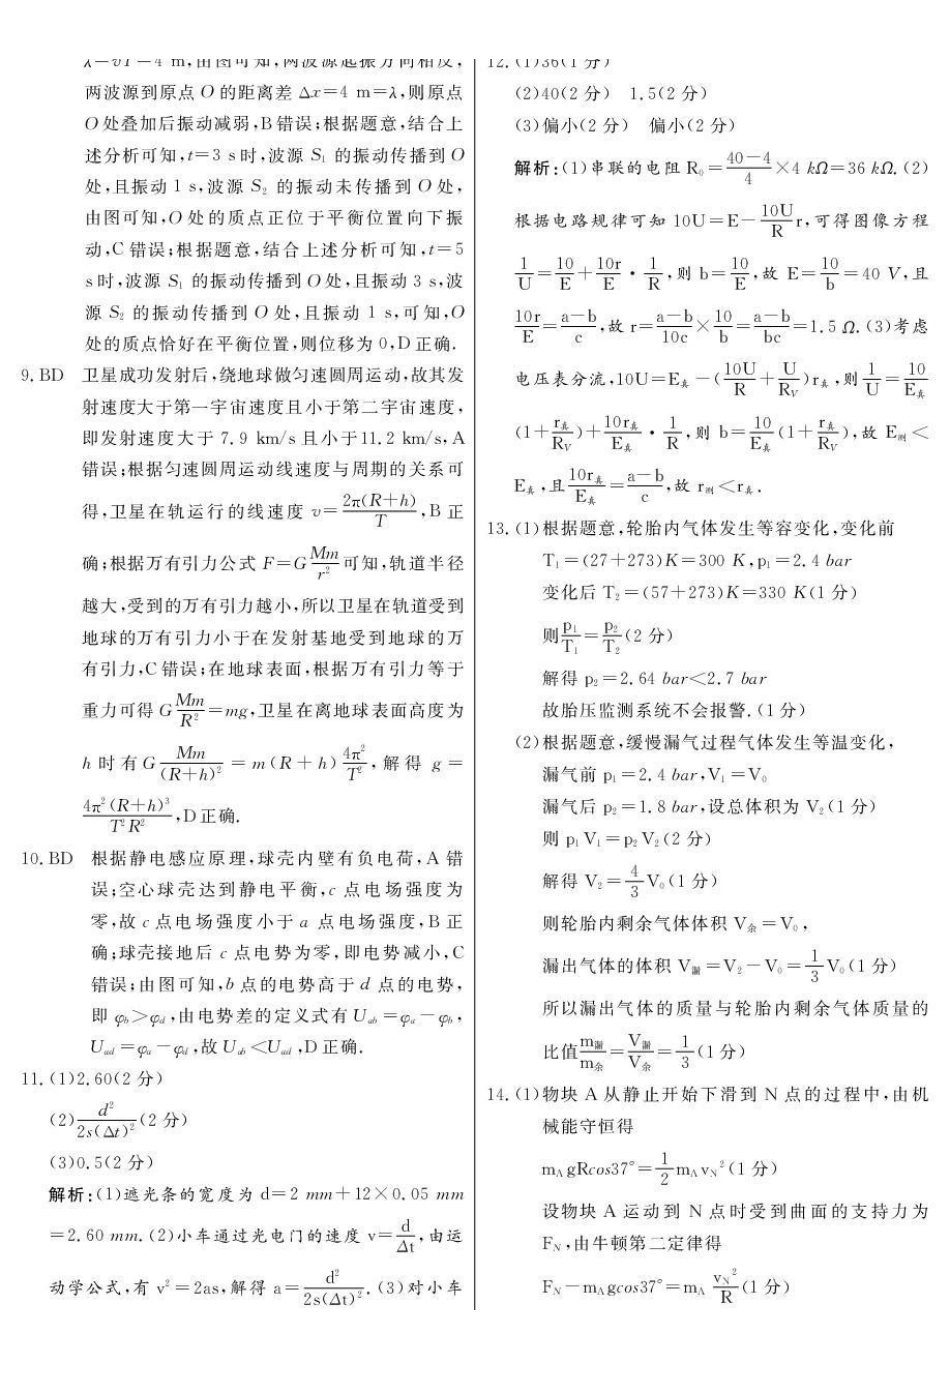 λ=vT=4 m,由图可知,两波源起振方向相反,
两波源到原点 O 的距离差 Δx=4 m=λ,则原点
O处叠加后振动减弱,B错误;根据题意,结合上
述分析可知,t=3 s时,波源 S₁ 的振动传播到 O
处,且振动 1 s,波源 S₂ 的振动未传播到 O 处,
由图可知,O 处的质点正位于平衡位置向下振
动,C 错误;根据题意,结合上述分析可知,t=5
s时,波源 S₁ 的振动传播到O处,且振动 3 s,波
源 S₂ 的振动传播到 O 处,且振动 1 s,可知,O
处的质点恰好在平衡位置,则位移为 0,D 正确.
9. BD 卫星成功发射后,绕地球做匀速圆周运动,故其发
射速度大于第一宇宙速度且小于第二宇宙速度,
即发射速度大于 7.9 km/s 且小于11.2 km/s,A
错误;根据匀速圆周运动线速度与周期的关系可
得,卫星在轨运行的线速度 v=2π(R+h)/T,B 正
确;根据万有引力公式 F=G Mm/r² 可知,轨道半径
越大,受到的万有引力越小,所以卫星在轨道受到
地球的万有引力小于在发射基地受到地球的万
有引力,C错误;在地球表面,根据万有引力等于
重力可得 G Mm/R²=mg,卫星在离地球表面高度为
h 时有 G Mm/(R+h)² = m(R+h) 4π²/T², 解得 g =
4π²(R+h)³/T²R²,D正确.
10. BD 根据静电感应原理,球壳内壁有负电荷,A 错
误;空心球壳达到静电平衡,c 点电场强度为
零,故 c 点电场强度小于 a 点电场强度,B 正
确;球壳接地后 c 点电势为零,即电势减小,C
错误;由图可知,b 点的电势高于 d 点的电势,
即 φb>φd,由电势差的定义式有 Uab=φa-φb,
Uad=φa-φd,故 Uab<Uad,D 正确.
11. (1)2.60(2 分)
(2) d²/2s(Δt)²(2 分)
(3)0.5(2 分)
解析:(1)遮光条的宽度为 d=2 mm+12×0.05 mm
=2.60 mm.(2)小车通过光电门的速度 v=d/Δt,由运
动学公式,有 v²=2as,解得 a=d²/2s(Δt)².(3)对小车
12. (1)36(1 分)
(2)40(2 分) 1.5(2 分)
(3)偏小(2 分) 偏小(2 分)
解析:(1)串联的电阻 R₀=(40-4)/4×4 kΩ=36 kΩ.(2)
根据电路规律可知 10U=E-10U/R r,可得图像方程
1/U=10/E+10r/E·1/R,则 b=10/E,故 E=10/b=40 V,且
10r/E=(a-b)/c,故 r=(a-b)/10c×10/b=(a-b)/bc=1.5 Ω.(3)考虑
电压表分流,10U=E真-(10U/R+U/RV)r真,则1/U=10/E真
(1+r真/RV)+10r真/E真·1/R,则 b=10/E真(1+r真/RV),故 E测<
E真,且10r真/E真=(a-b)/c,故 r测<r真.
13. (1)根据题意,轮胎内气体发生等容变化,变化前
T₁=(27+273)K=300 K,p₁=2.4 bar
变化后 T₂=(57+273)K=330 K(1 分)
则p₁/T₁=p₂/T₂(2 分)
解得 p₂=2.64 bar<2.7 bar
故胎压监测系统不会报警.(1 分)
(2)根据题意,缓慢漏气过程气体发生等温变化,
漏气前 p₁=2.4 bar,V₁=V₀
漏气后 p₂=1.8 bar,设总体积为 V₂(1 分)
则 p₁V₁=p₂V₂(2 分)
解得 V₂=4/3 V₀(1 分)
则轮胎内剩余气体体积 V余=V₀,
漏出气体的体积 V漏=V₂-V₀=1/3 V₀(1 分)
所以漏出气体的质量与轮胎内剩余气体质量的
比值m漏/m余=V漏/V余=1/3(1 分)
14. (1)物块 A 从静止开始下滑到 N 点的过程中,由机
械能守恒得
mAgRcos37°=1/2 mAvN²(1 分)
设物块 A 运动到 N 点时受到曲面的支持力为
FN,由牛顿第二定律得
FN-mAgcos37°=mA vN²/R(1 分)